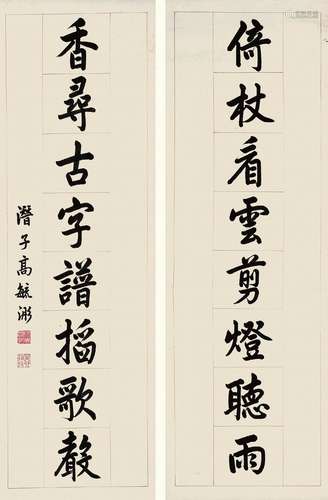 倚杖看雲剪燈聽雨
香尋古字譜搯歌聲
潛子高毓浵